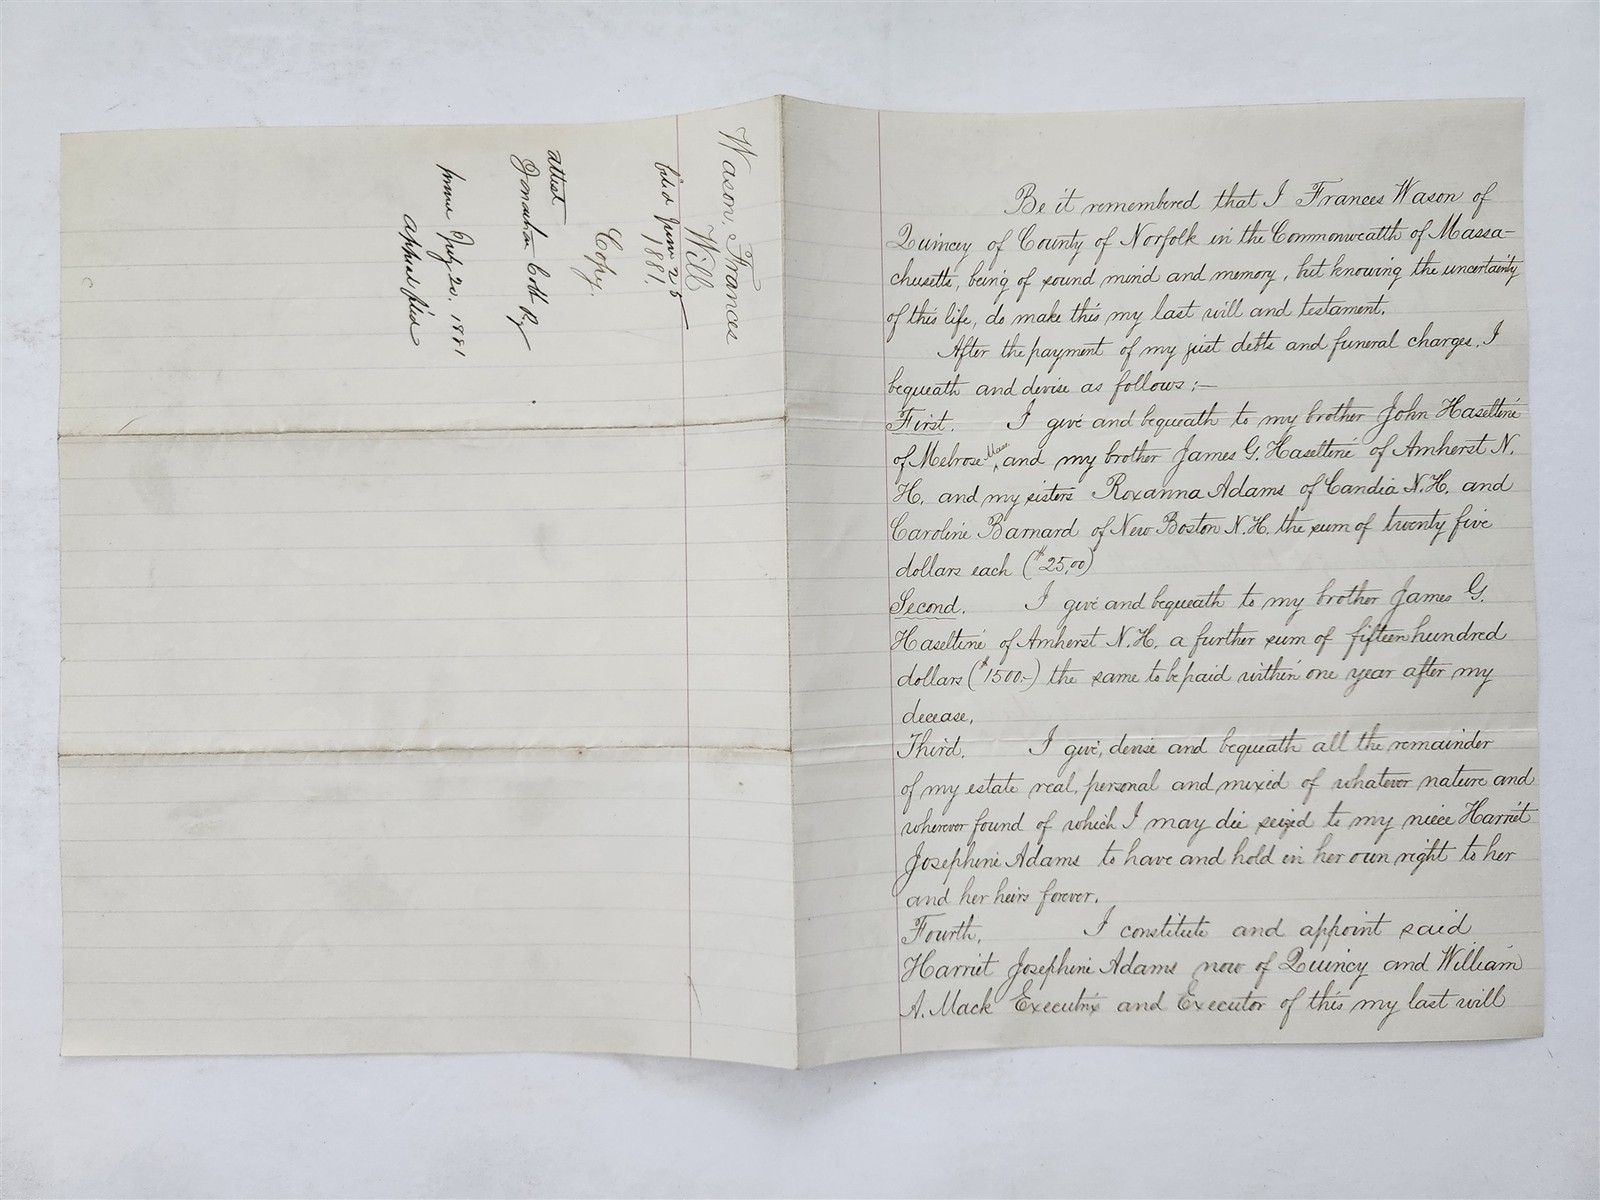 Wason, Frances
Will
filed June 25
1881.
Copy.
attest
Jonathan Cobb Rg
proved July 20, 1881
appeal filed
Be it remembered that I Frances Wason of
Quincey of County of Norfolk in the Commonwealth of Massa-
chusetts, being of sound mind and memory, but knowing the uncertainty
of this life, do make this my last will and testament.
After the payment of my just debts and funeral charges, I
bequeath and devise as follows:-
First. I give and bequeath to my brother John Haseltine
of Melrose Mass, and my brother James G. Haseltine of Amherst N.
H. and my sisters Roxanna Adams of Candia N.H. and
Caroline Barnard of New Boston N.H. the sum of twenty five
dollars each ($25,00)
Second. I give and bequeath to my brother James G.
Haseltine of Amherst N.H. a further sum of fifteen hundred
dollars ($1500.-) the same to be paid within one year after my
decease.
Third. I give, devise and bequeath all the remainder
of my estate real, personal and mixed of whatever nature and
wherever found of which I may die seized to my niece Harriet
Josephine Adams to have and hold in her own right to her
and her heirs forever.
Fourth. I constitute and appoint said
Harriet Josephine Adams now of Quincy and William
A. Mack Executrix and Executor of this my last will